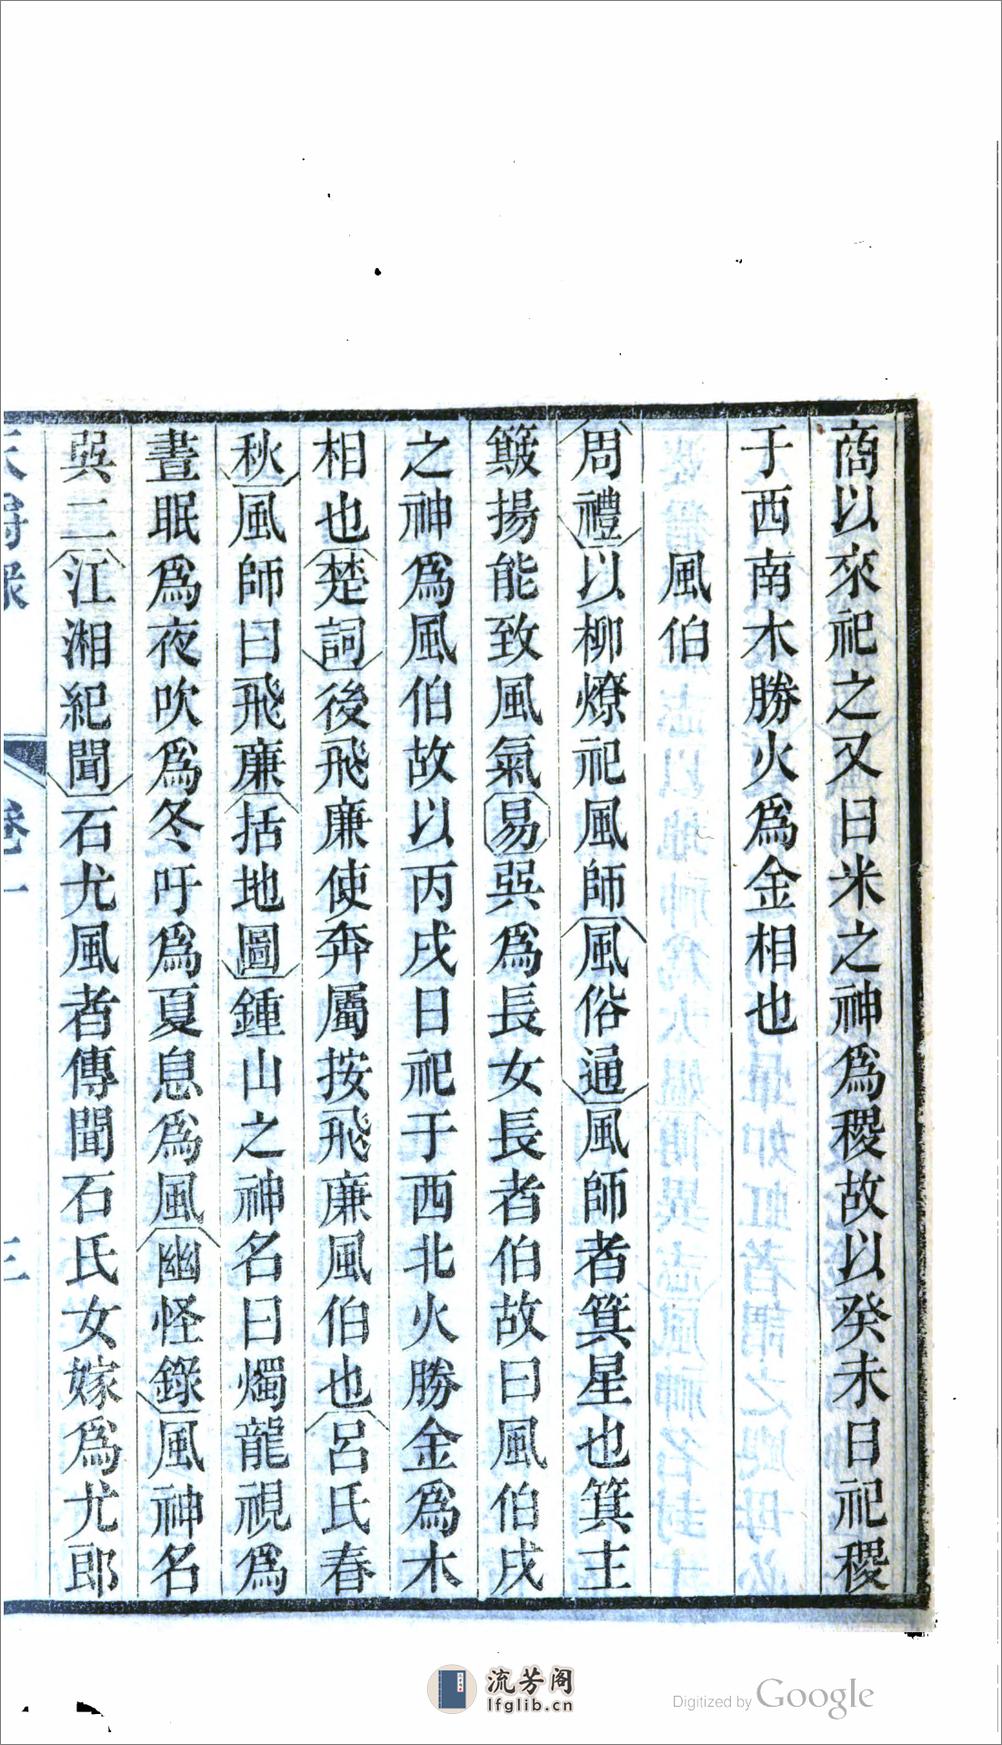 商以來祀之又曰米之神爲稷故以癸未日祀稷
于西南木勝火爲金相也
風伯
周禮以柳燎祀風師風俗通風師者箕星也箕主
簸揚能致風氣易巽爲長女長者伯故曰風伯戌
之神爲風伯故以丙戌日祀于西北火勝金爲木
相也楚詞後飛廉使奔屬按飛廉風伯也呂氏春
秋風師曰飛廉括地圖鍾山之神名曰燭龍視爲
晝眠爲夜吹爲冬吁爲夏息爲風幽怪錄風神名
巽二江湘紀聞石尤風者傳聞石氏女嫁爲尤郎
卷一
三
流芳阁
lfglib.cn
Digitized by Google